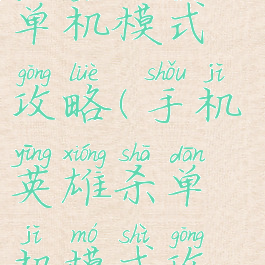 单机模式
gōng lüè shǒu jī
攻略(手机
yīng xióng shā dān
英雄杀单
jī mó shì gōng
机模式攻